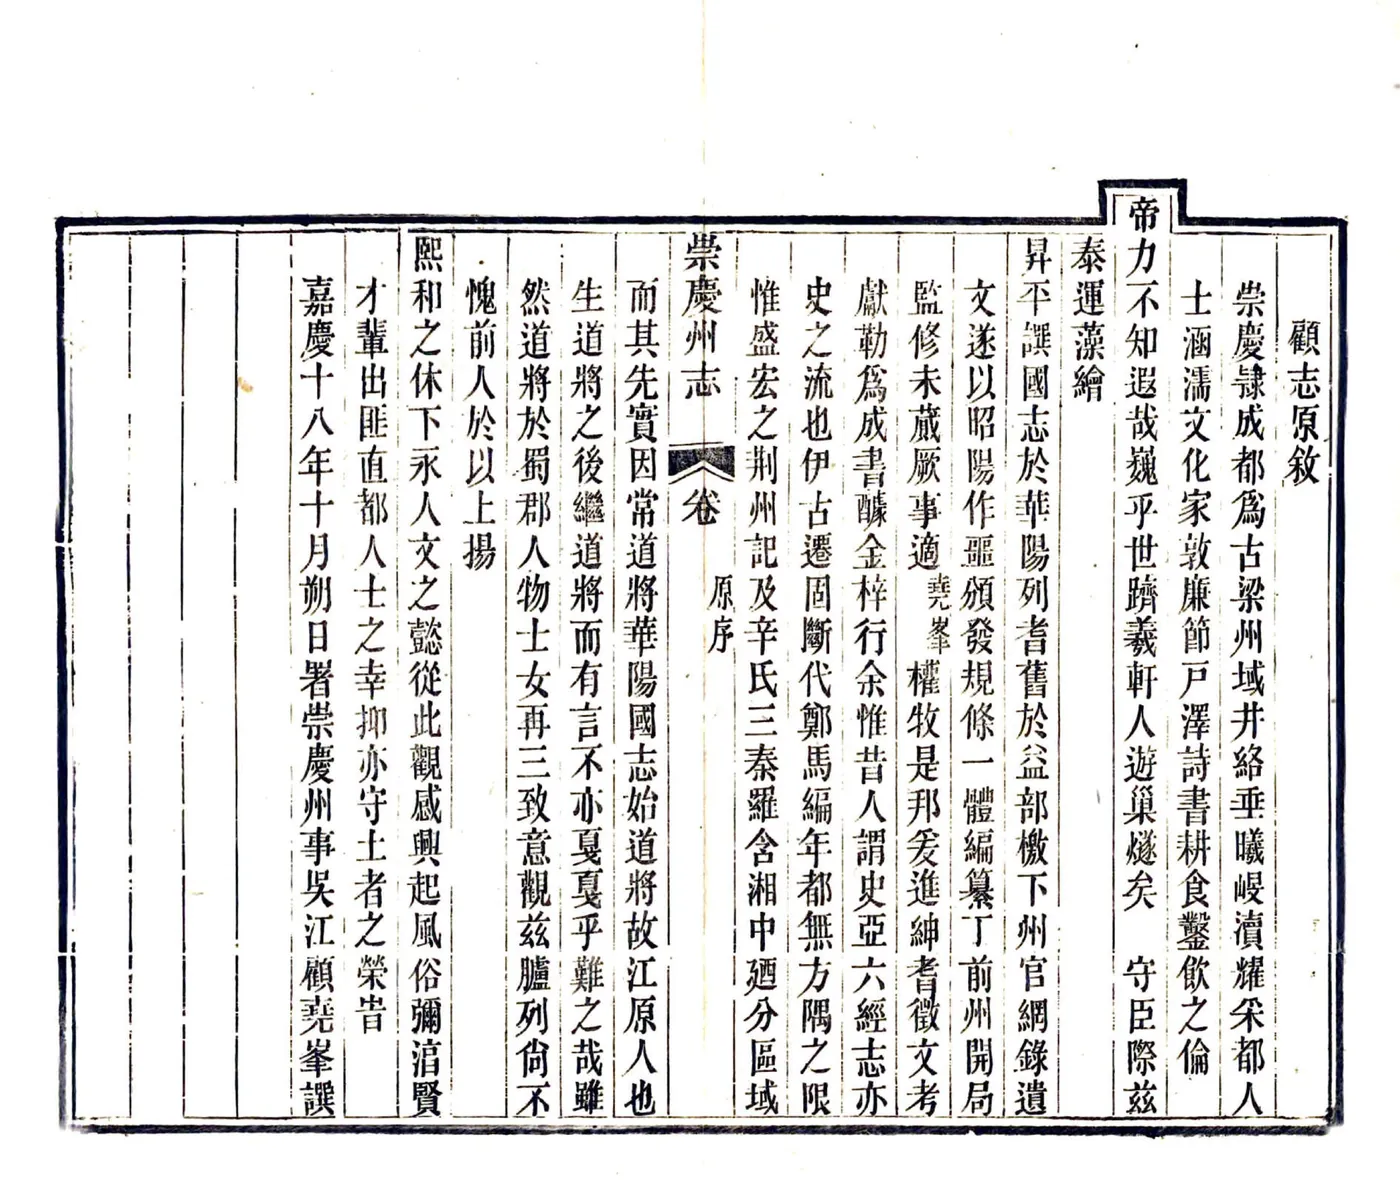 顧志原敘
崇慶隸成都爲古梁州域井絡垂曦㟭瀆耀采都人
士涵濡文化家敦廉節戸澤詩書耕食鑿飲之倫
帝力不知遐哉巍乎世躋羲軒人遊巢燧矣 守臣際兹
泰運藻繪
昇平譔國志於華陽列耆舊於益部檄下州官網錄遺
文遂以昭陽作噩頒發規條一體編纂丁前州開局
監修未蕆厥事適堯峯權牧是邦爰進紳耆徵文考
獻勒爲成書醵金梓行余惟昔人謂史亞六經志亦
史之流也伊古遷固斷代鄭馬編年都無方隅之限
惟盛宏之荆州記及辛氏三秦羅含湘中廼分區域
崇慶州志 卷 原序
而其先實因常道將華陽國志始道將故江原人也
生道將之後繼道將而有言不亦戛戛乎難之哉雖
然道將於蜀郡人物士女再三致意觀兹臚列尙不
愧前人於以上揚
熙和之休下永人文之懿從此觀感興起風俗彌湻賢
才輩出匪直都人士之幸抑亦守土者之榮旹
嘉慶十八年十月朔日署崇慶州事吳江顧堯峯譔